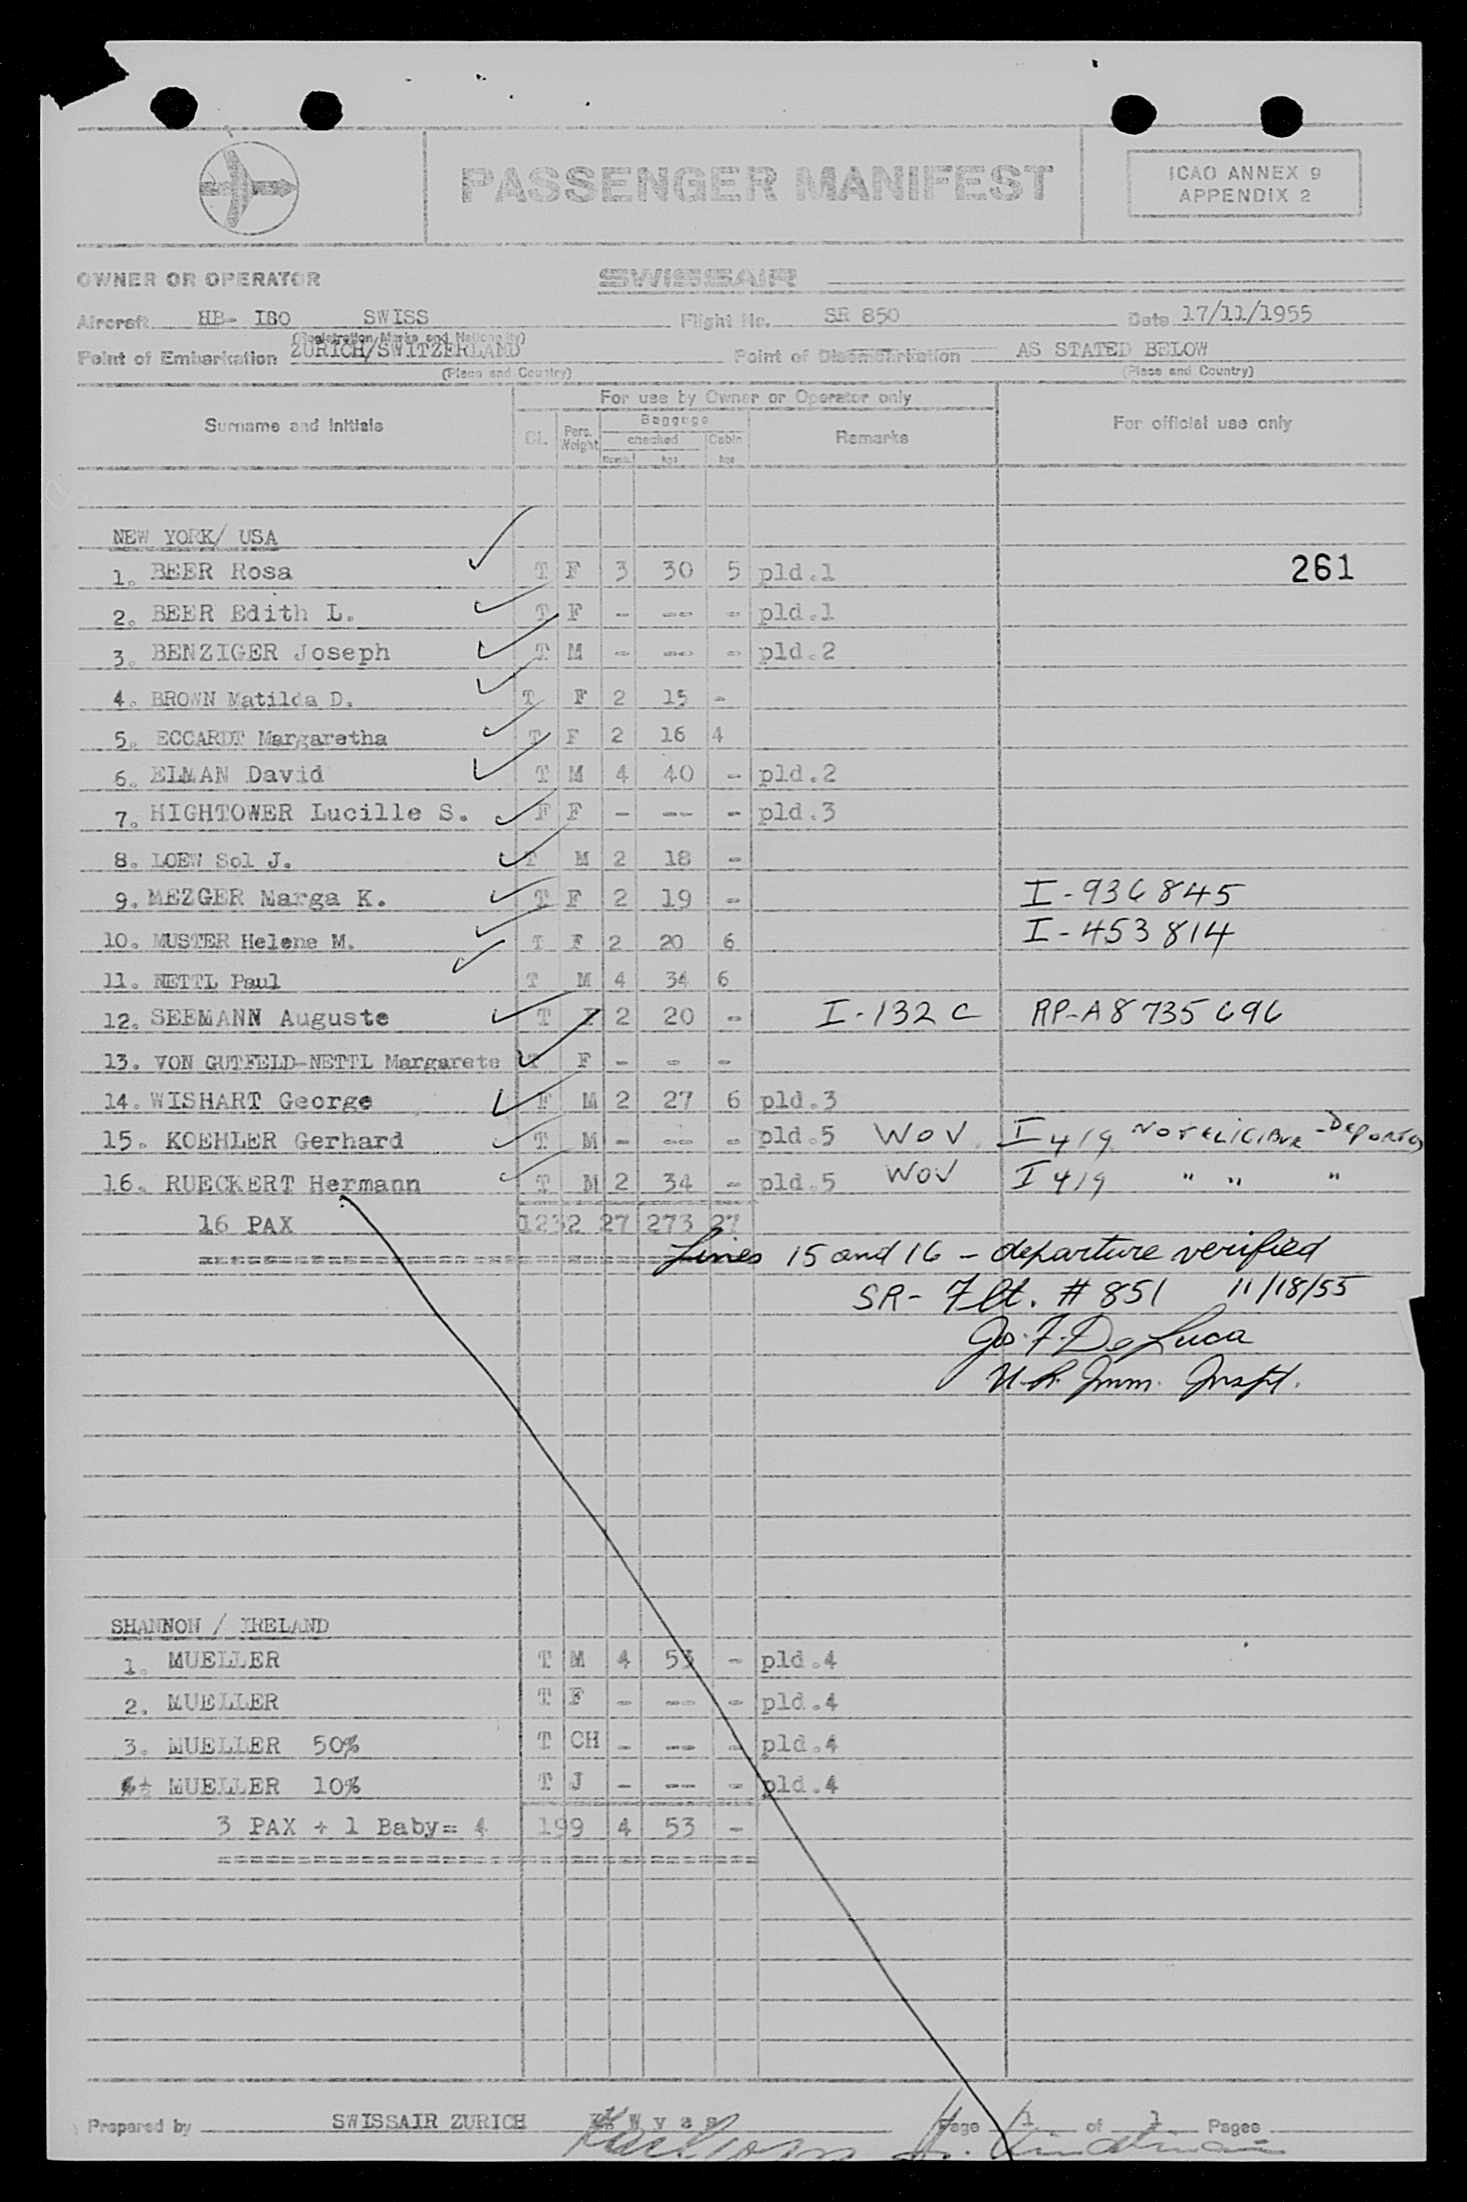 PASSENGER MANIFEST
ICAO ANNEX 9
APPENDIX 2
OWNER OR OPERATOR SWISSAIR
Aircraft HB- ISO SWISS Flight No. SR 850 Date 17/11/1955
(Registration Marks and Nationality)
Point of Embarkation ZURICH/SWITZERLAND Point of Disembarkation AS STATED BELOW
(Place and Country) (Place and Country)
For use by Owner or Operator only
Surname and Initials Cl. Pers. Weight Baggage checked kgs Cabin kgs Remarks For official use only
NEW YORK/ USA
1. BEER Rosa T F 3 30 5 pld.1 261
2. BEER Edith L. T F - --- - pld.1
3. BENZIGER Joseph T M - --- - pld.2
4. BROWN Matilda D. T F 2 15 -
5. ECCARDT Margaretha T F 2 16 4
6. ELMAN David T M 4 40 - pld.2
7. HIGHTOWER Lucille S. F F - --- - pld.3
8. LOEW Sol J. T M 2 18 -
9. MEZGER Marga K. T F 2 19 - I-936845
10. MUSTER Helene M. T F 2 20 6 I-453814
11. NETTL Paul T M 4 34 6
12. SEEMANN Auguste T F 2 20 - I-132 C RP-A8735696
13. VON GUTFELD-NETTL Margarete T F - - -
14. WISHART George F M 2 27 6 pld.3
15. KOEHLER Gerhard T M - --- - pld.5 WOV I 419 NOT ELIGIBLE - DEPORTED
16. RUECKERT Hermann T M 2 34 - pld.5 WOV I 419 " " "
16 PAX 1232 27 273 27
Lines 15 and 16 - departure verified
SR- Flt. # 851 11/18/55
Jo. F. De Luca
U.S. Imm. Inspt.
SHANNON / IRELAND
1. MUELLER T M 4 53 - pld.4
2. MUELLER T F - --- - pld.4
3. MUELLER 50% T CH - --- - pld.4
MUELLER 10% T J - --- - pld.4
3 PAX + 1 Baby= 4 199 4 53 -
Prepared by SWISSAIR ZURICH W y s s Page 1 of 1 Pages